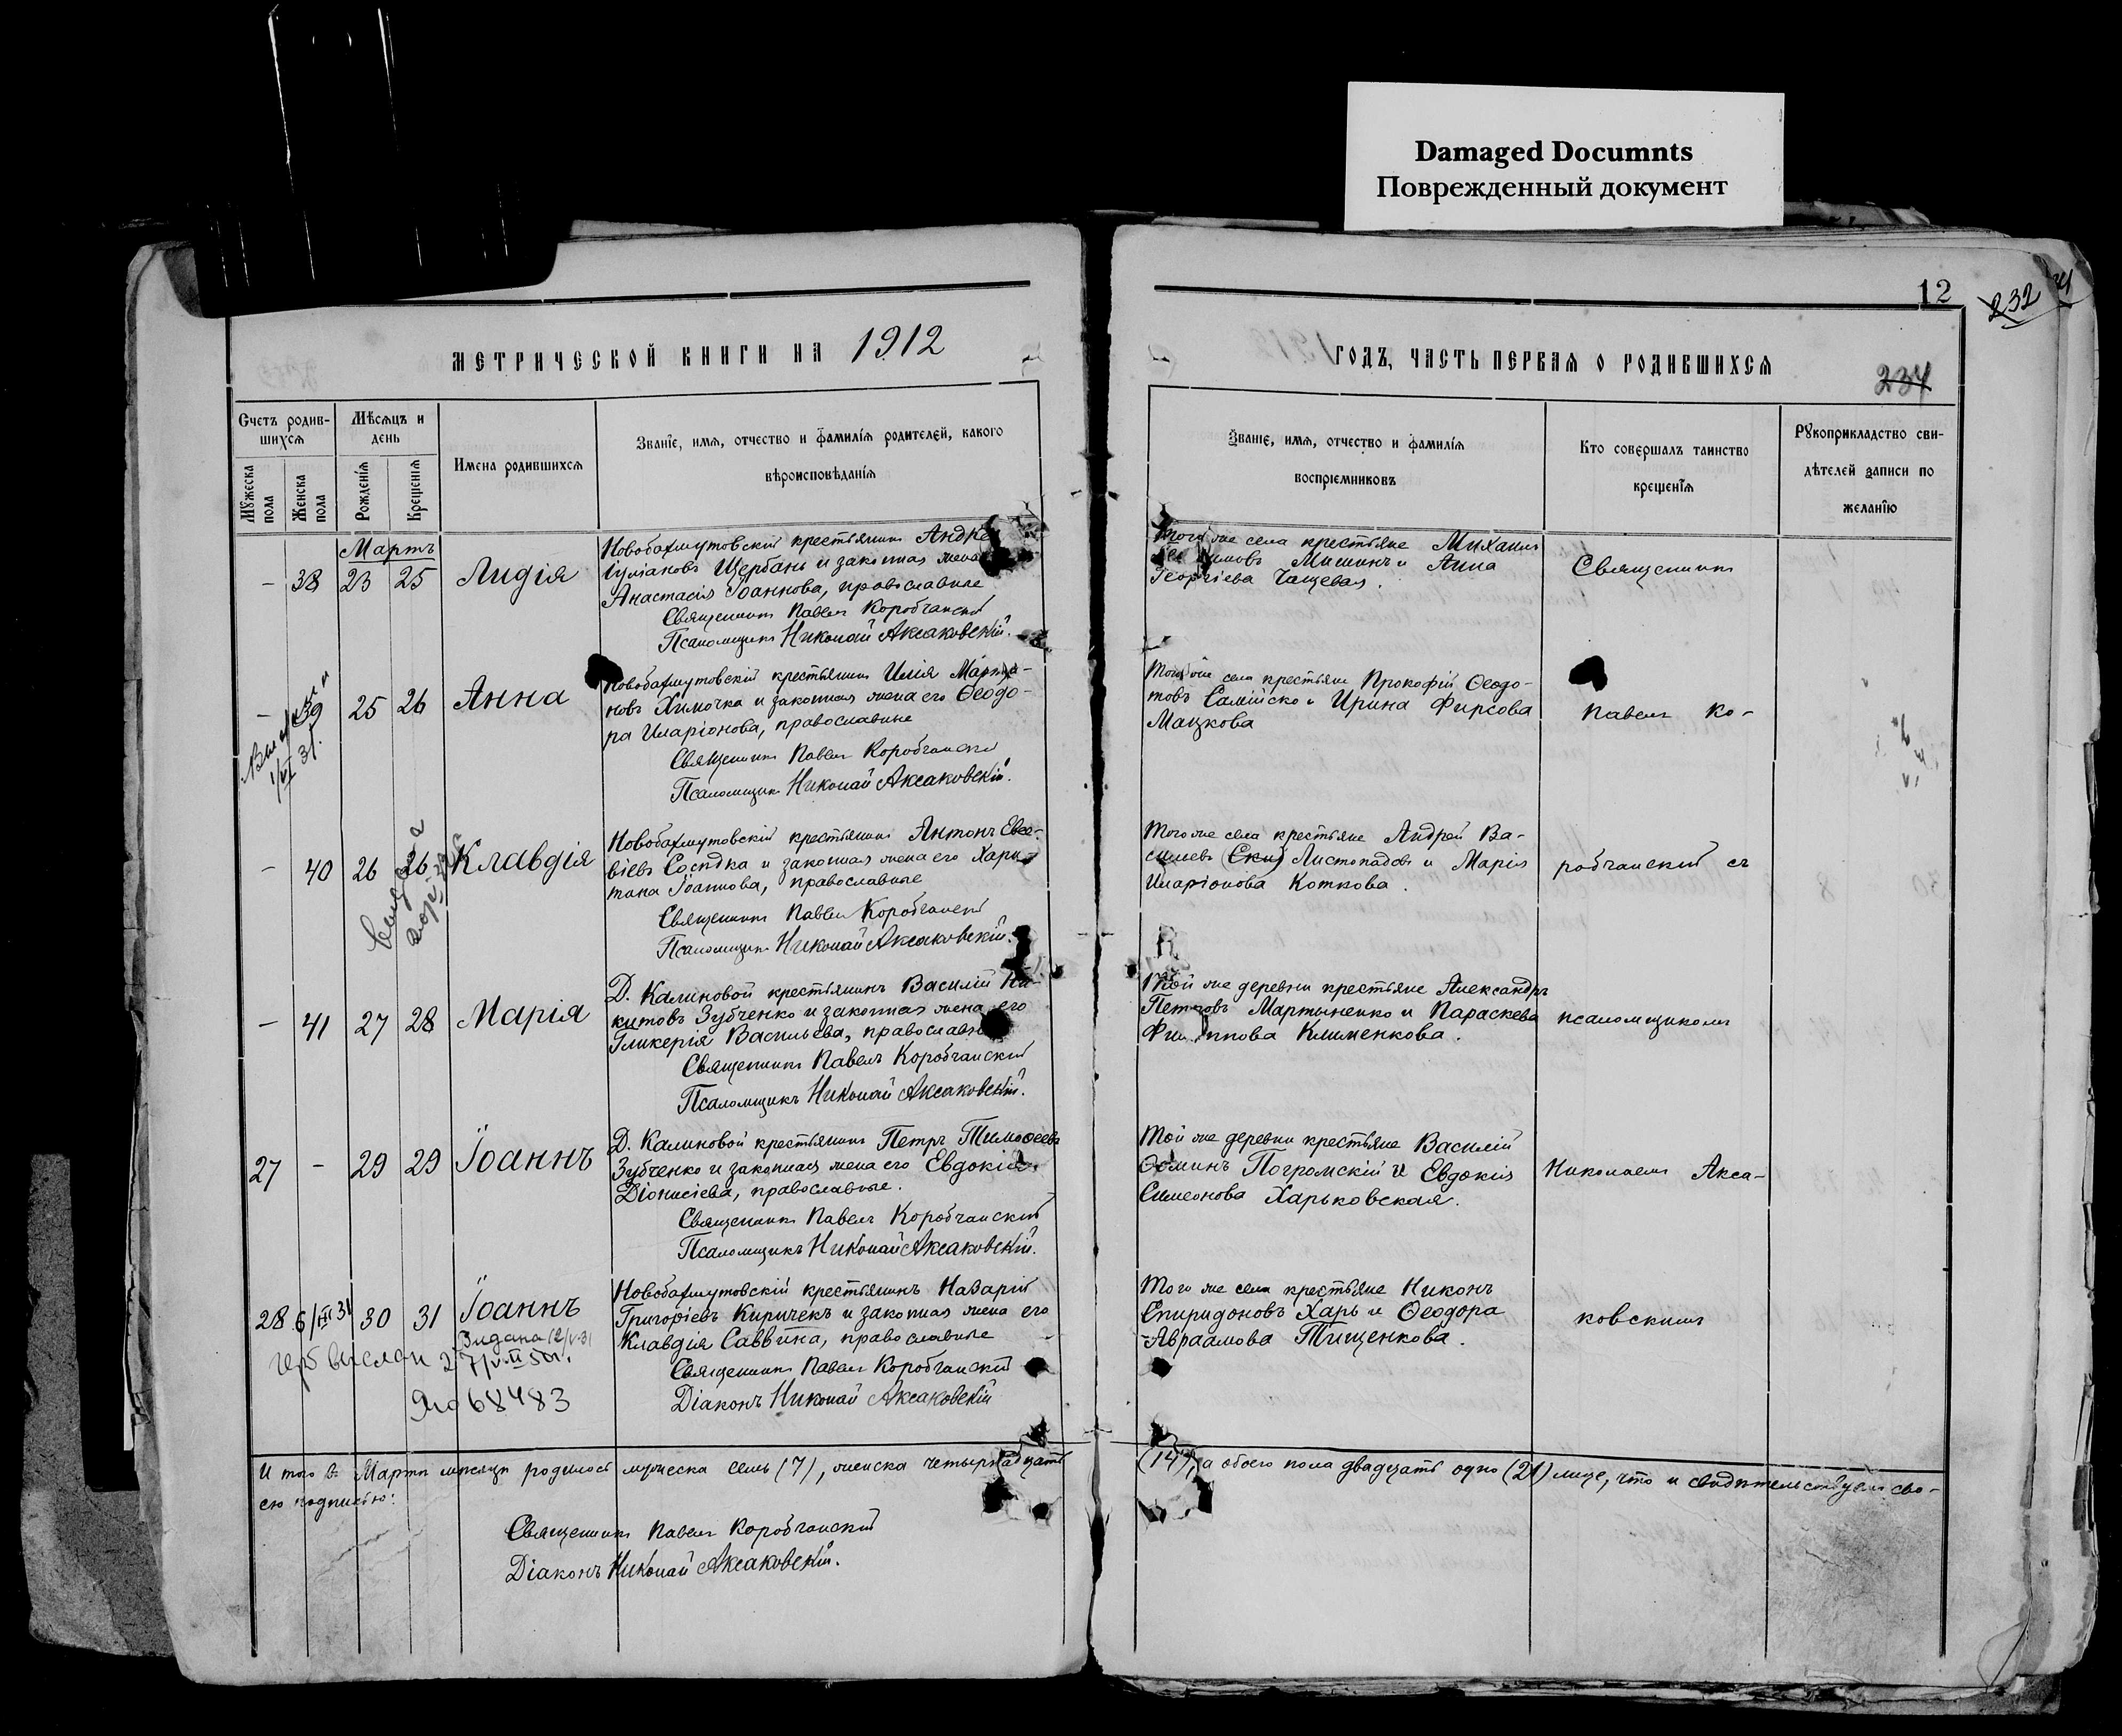 Damaged Documnts
Поврежденный документ
12
232
234
МЕТРИЧЕСКОЙ КНИГИ НА 1912
ГОДЪ, ЧАСТЬ ПЕРВАЯ О РОДИВШИХСЯ
Счетъ родив-
шихся
Мѣсяцъ и
день
Мужеска
пола
Женска
пола
Рожденія
Крещенія
Имена родившихся
Званіе, имя, отчество и фамилія родителей, какого
вѣроисповѣданія
Званіе, имя, отчество и фамилія
воспріемниковъ
Кто совершалъ таинство
крещенія
Рукоприкладство сви-
дѣтелей записи по
желанію
Мартъ
- 38 23 25 Лидія
Новобахмутовскій крестьянинъ
Щербань и законная жена
Анастасія Іоаннова, православные
Священникъ Павелъ Коробчанскій
Псаломщикъ Николай Аксаковскій.
Того же села крестьяне Михаилъ
Мишинъ и Анна
Георгіева
Священникъ
- 39 25 26 Анна
1/VI 31.
Новобахмутовскій крестьянинъ Илія
новъ Химочка и законная жена его Ѳеодо-
ра Иларіонова, православные
Священникъ Павелъ Коробчанскій
Псаломщикъ Николай Аксаковскій.
Того же села крестьяне Прокофій Ѳеодо-
товъ и Ирина Фирсова
Мацкова
Павелъ Ко-
- 40 26 26 Клавдія
Новобахмутовскій крестьянинъ Антонъ Евсе-
віевъ Сосѣдка и законная жена его Хари-
тина Іоаннова, православные
Священникъ Павелъ Коробчанскій
Псаломщикъ Николай Аксаковскій.
Того же села крестьяне Андрей Ва-
сильевъ Листопадовъ и Марія
Иларіонова Коткова.
робчанскій съ
- 41 27 28 Марія
Д. Калиновой крестьянинъ Василій Ни-
китовъ Зубченко и законная жена его
Гликерія Васильева, православные
Священникъ Павелъ Коробчанскій
Псаломщикъ Николай Аксаковскій.
Той же деревни крестьяне Александръ
Петровъ Мартыненко и Параскева
Филиппова Клименкова.
псаломщикомъ
27 - 29 29 Іоаннъ
Д. Калиновой крестьянинъ Петръ Тимоѳеевъ
Зубченко и законная жена его Евдокія
Діонисіева, православные.
Священникъ Павелъ Коробчанскій
Псаломщикъ Николай Аксаковскій.
Той же деревни крестьяне Василій
Ѳоминъ Погромскій и Евдокія
Симеонова Харьковская.
Николаемъ Акса-
28 6/III 31 30 31 Іоаннъ
68483
Новобахмутовскій крестьянинъ Назарій
Григоріевъ Киричекъ и законная жена его
Клавдія Саввина, православные
Священникъ Павелъ Коробчанскій
Діаконъ Николай Аксаковскій
Того же села крестьяне Никонъ
Спиридоновъ Харь и Ѳеодора
Авраамова Тищенкова.
ковскимъ
И того въ Мартѣ мѣсяцѣ родилось мужеска семь (7), женска четырнадцать (14), а обоего пола двадцать одно (21) лице, что и свидѣтельствуемъ сво-
ею подписью:
Священникъ Павелъ Коробчанскій
Діаконъ Николай Аксаковскій.